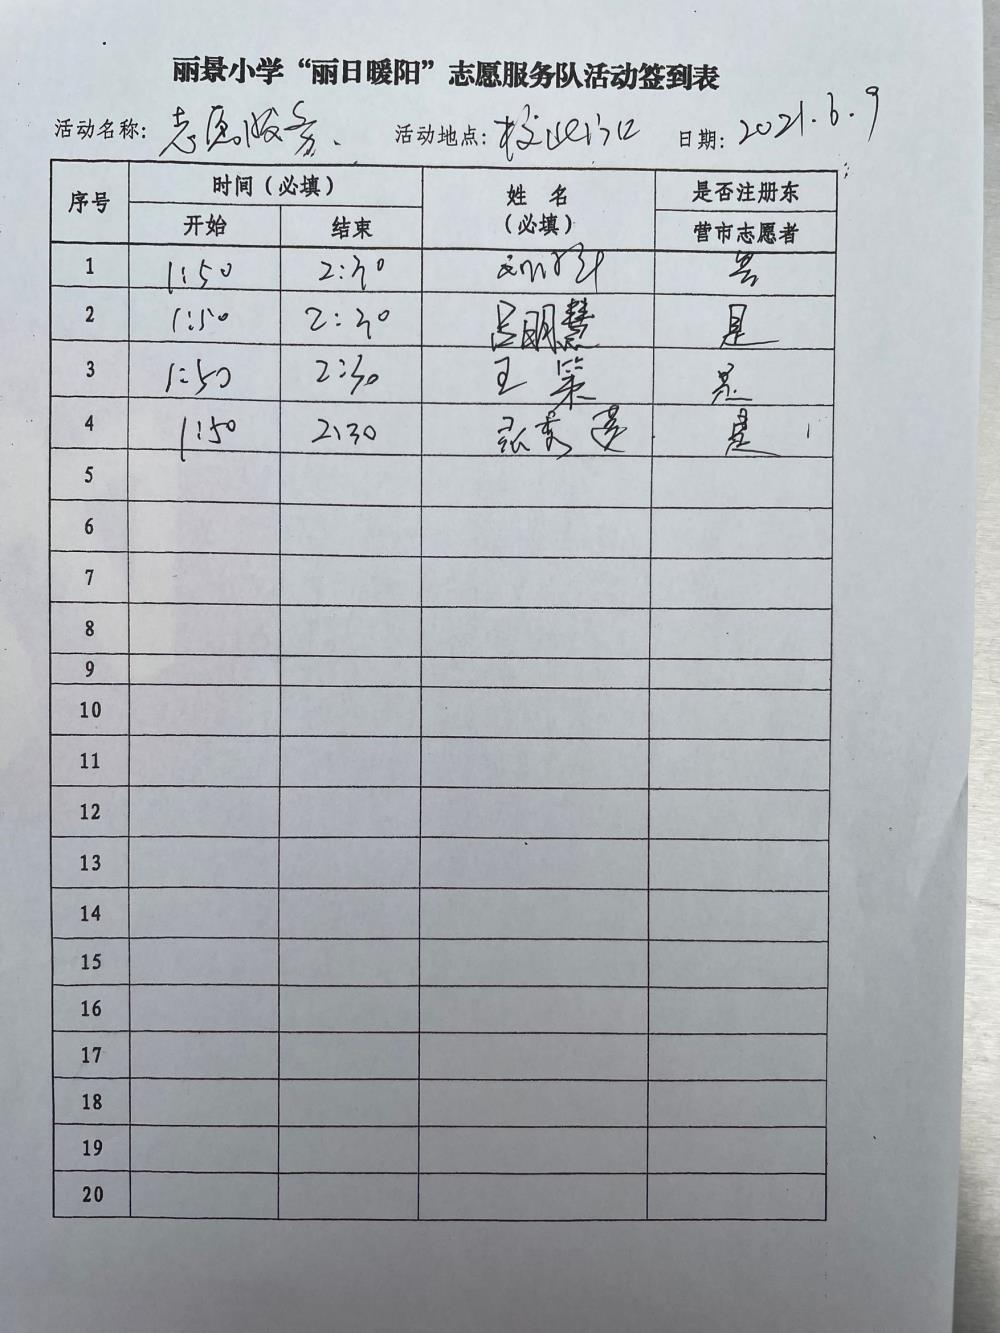 丽景小学“丽日暖阳”志愿服务队活动签到表
活动名称: 志愿服务. 活动地点: 校西门口 日期: 2021.6.9
序号 时间(必填) 姓 名 是否注册东
开始 结束 (必填) 营市志愿者
1 1:50 2:30 是
2 1:50 2:30 吕明慧 是
3 1:50 2:30 王 策 是
4 1:50 2:30 张秀 是
5
6
7
8
9
10
11
12
13
14
15
16
17
18
19
20